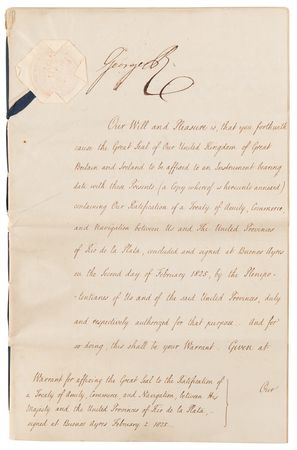 George R
Our Will and Pleasure is, that you forthwith
cause the Great Seal of Our United Kingdom of Great
Britain and Ireland to be affixed to an Instrument bearing
date with these Presents, (a Copy whereof is hereunto annexed)
containing Our Ratification of a Treaty of Amity, Commerce,
and Navigation between Us and The United Provinces
of Rio de la Plata, concluded and signed at Buenos Ayres
on the Second day of February 1825, by the Plenipo-
-tentiaries of Us and of the said United Provinces, duly
and respectively authorized for that purpose. And for
so doing, this shall be your Warrant. Given at
Our
Warrant for affixing the Great Seal to the Ratification of
a Treaty of Amity, Commerce, and Navigation, between His
Majesty and the United Provinces of Rio de la Plata,
signed at Buenos Ayres February 2. 1825.